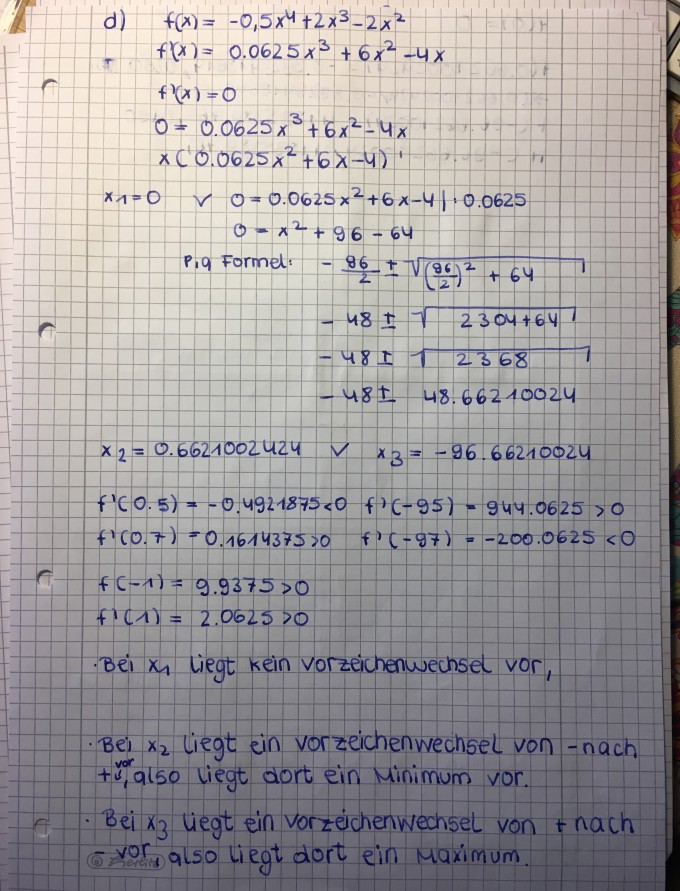 d) f(x) = -0,5x⁴+2x³-2x²
f'(x) = 0.0625x³ + 6x² -4x
f'(x) = 0
0 = 0.0625x³+6x²-4x
x(0.0625x²+6x-4)
x1=0 ∨ 0=0.0625x²+6x-4 | : 0.0625
0 = x² + 96 - 64
P,q Formel: - 96/2 ± √((96/2)² + 64)
- 48 ± √(2304+64)
- 48 ± √(2368)
- 48 ± 48.66210024
x2 = 0.6621002424 ∨ x3 = -96.66210024
f'(0.5) = -0.4921875<0 f'(-95) = 944.0625 >0
f'(0.7) = 0.1614375>0 f'(-97) = -200.0625 <0
f(-1) = 9.9375>0
f'(1) = 2.0625>0
· Bei x1 liegt kein Vorzeichenwechsel vor,
· Bei x2 liegt ein Vorzeichenwechsel von - nach
+ vor, also liegt dort ein Minimum vor.
· Bei x3 liegt ein Vorzeichenwechsel von + nach
- vor, also liegt dort ein Maximum.